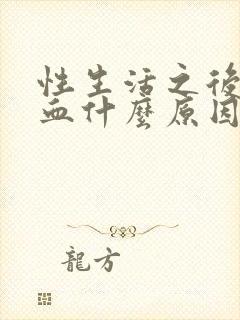 性生活之後
血什麼原因
龍方